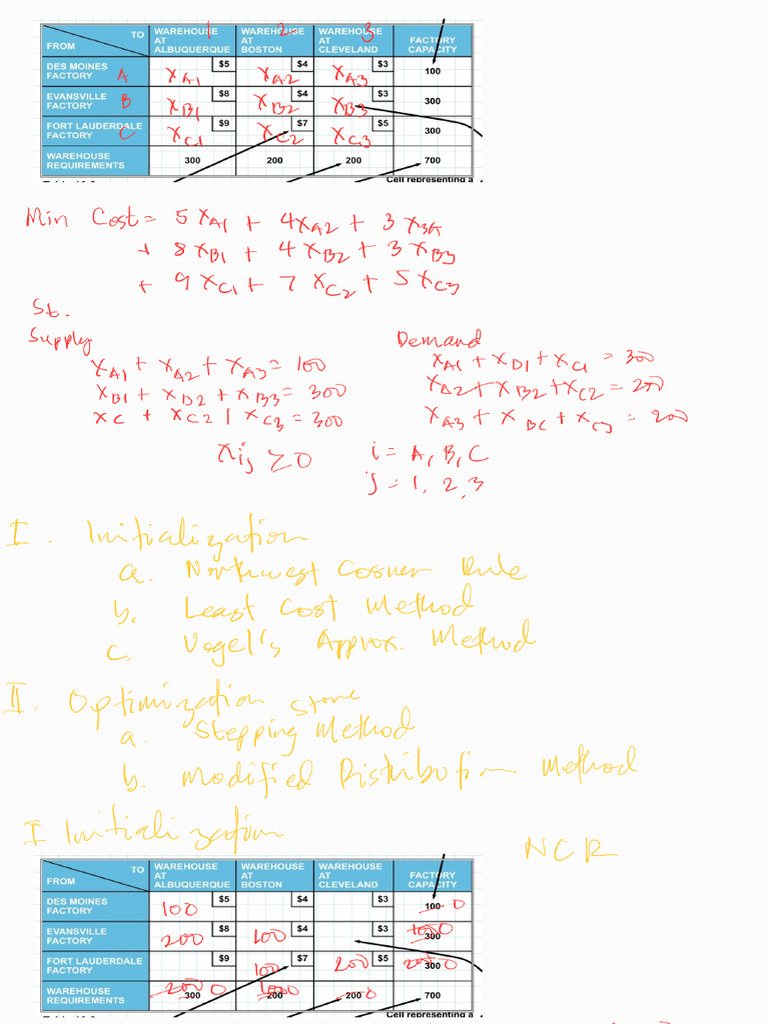 TO WAREHOUSE 1 WAREHOUSE 2 WAREHOUSE 3 FACTORY
FROM AT ALBUQUERQUE AT BOSTON AT CLEVELAND CAPACITY
DES MOINES FACTORY A XA1 $5 XA2 $4 XA3 $3 100
EVANSVILLE FACTORY B XB1 $8 XB2 $4 XB3 $3 300
FORT LAUDERDALE FACTORY C XC1 $9 XC2 $7 XC3 $5 300
WAREHOUSE REQUIREMENTS 300 200 200 700
Cell representing a
Min Cost = 5 XA1 + 4XA2 + 3 X3A
+ 8XB1 + 4 XB2 + 3 XB3
+ 9 XC1 + 7 XC2 + 5XC3
St.
Supply
XA1 + XA2 + XA3 = 100
XB1 + XB2 + XB3 = 300
XC + XC2 + XC3 = 300
Demand
XA1 + XB1 + XC1 = 300
XA2 + XB2 + XC2 = 200
XA3 + X BC + XC3 = 200
Xij ≥ 0
i = A, B, C
j = 1, 2, 3
I. Initialization
a. Northwest Corner Rule
b. Least Cost Method
c. Vogel's Approx. Method
II. Optimization Stone
a. Stepping Method
b. Modified Distribution Method
I Initialization
NCR
TO WAREHOUSE WAREHOUSE WAREHOUSE FACTORY
FROM AT ALBUQUERQUE AT BOSTON AT CLEVELAND CAPACITY
DES MOINES FACTORY 100 $5 $4 $3 100 0
EVANSVILLE FACTORY 200 $8 100 $4 $3 300 100 0
FORT LAUDERDALE FACTORY $9 100 $7 200 $5 300 200 0
WAREHOUSE REQUIREMENTS 300 200 0 200 100 0 200 0 700
Cell representing a